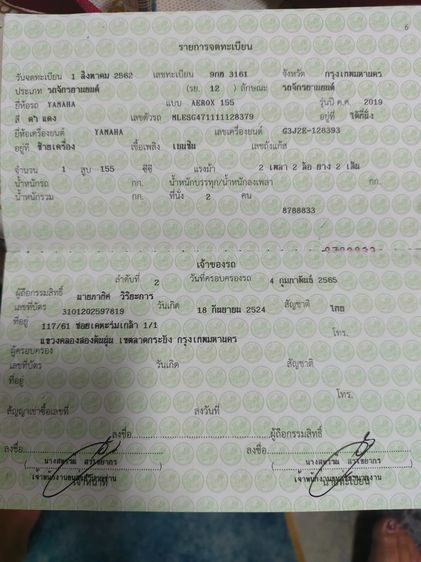 6
รายการจดทะเบียน
วันจดทะเบียน 1 สิงหาคม 2562 เลขทะเบียน 9กต 3161 จังหวัด กรุงเทพมหานคร
ประเภท รถจักรยานยนต์ (รย. 12 ) ลักษณะ รถจักรยานยนต์
ยี่ห้อรถ YAMAHA แบบ AEROX 155 รุ่นปี ค.ศ. 2019
สี ดำ แดง เลขตัวรถ MLESG471111128379 อยู่ที่ ใต้ที่นั่ง
ยี่ห้อเครื่องยนต์ YAMAHA เลขเครื่องยนต์ G3J2E-128393
อยู่ที่ ซ้ายเครื่อง เชื้อเพลิง เบนซิน เลขถังแก๊ส
จำนวน 1 สูบ 155 ซีซี แรงม้า 2 เพลา 2 ล้อ ยาง 2 เส้น
น้ำหนักรถ กก. น้ำหนักบรรทุก/น้ำหนักลงเพลา กก.
น้ำหนักรวม กก. ที่นั่ง 2 คน
8788833
เจ้าของรถ
ลำดับที่ 2 วันที่ครอบครองรถ 4 กุมภาพันธ์ 2565
ผู้ถือกรรมสิทธิ์ นายภากิศ วิริยะการ
เลขที่บัตร 3101202597819 วันเกิด 18 กันยายน 2524 สัญชาติ ไทย
ที่อยู่ 117/61 ซอยเคหะร่มเกล้า 1/1 โทร.
แขวงคลองสองต้นนุ่น เขตลาดกระบัง กรุงเทพมหานคร
ผู้ครอบครอง
เลขที่บัตร วันเกิด สัญชาติ
ที่อยู่
โทร.
สัญญาเช่าซื้อเลขที่ ลงวันที่
ลงชื่อ ผู้ถือกรรมสิทธิ์
ลงชื่อ ลงชื่อ